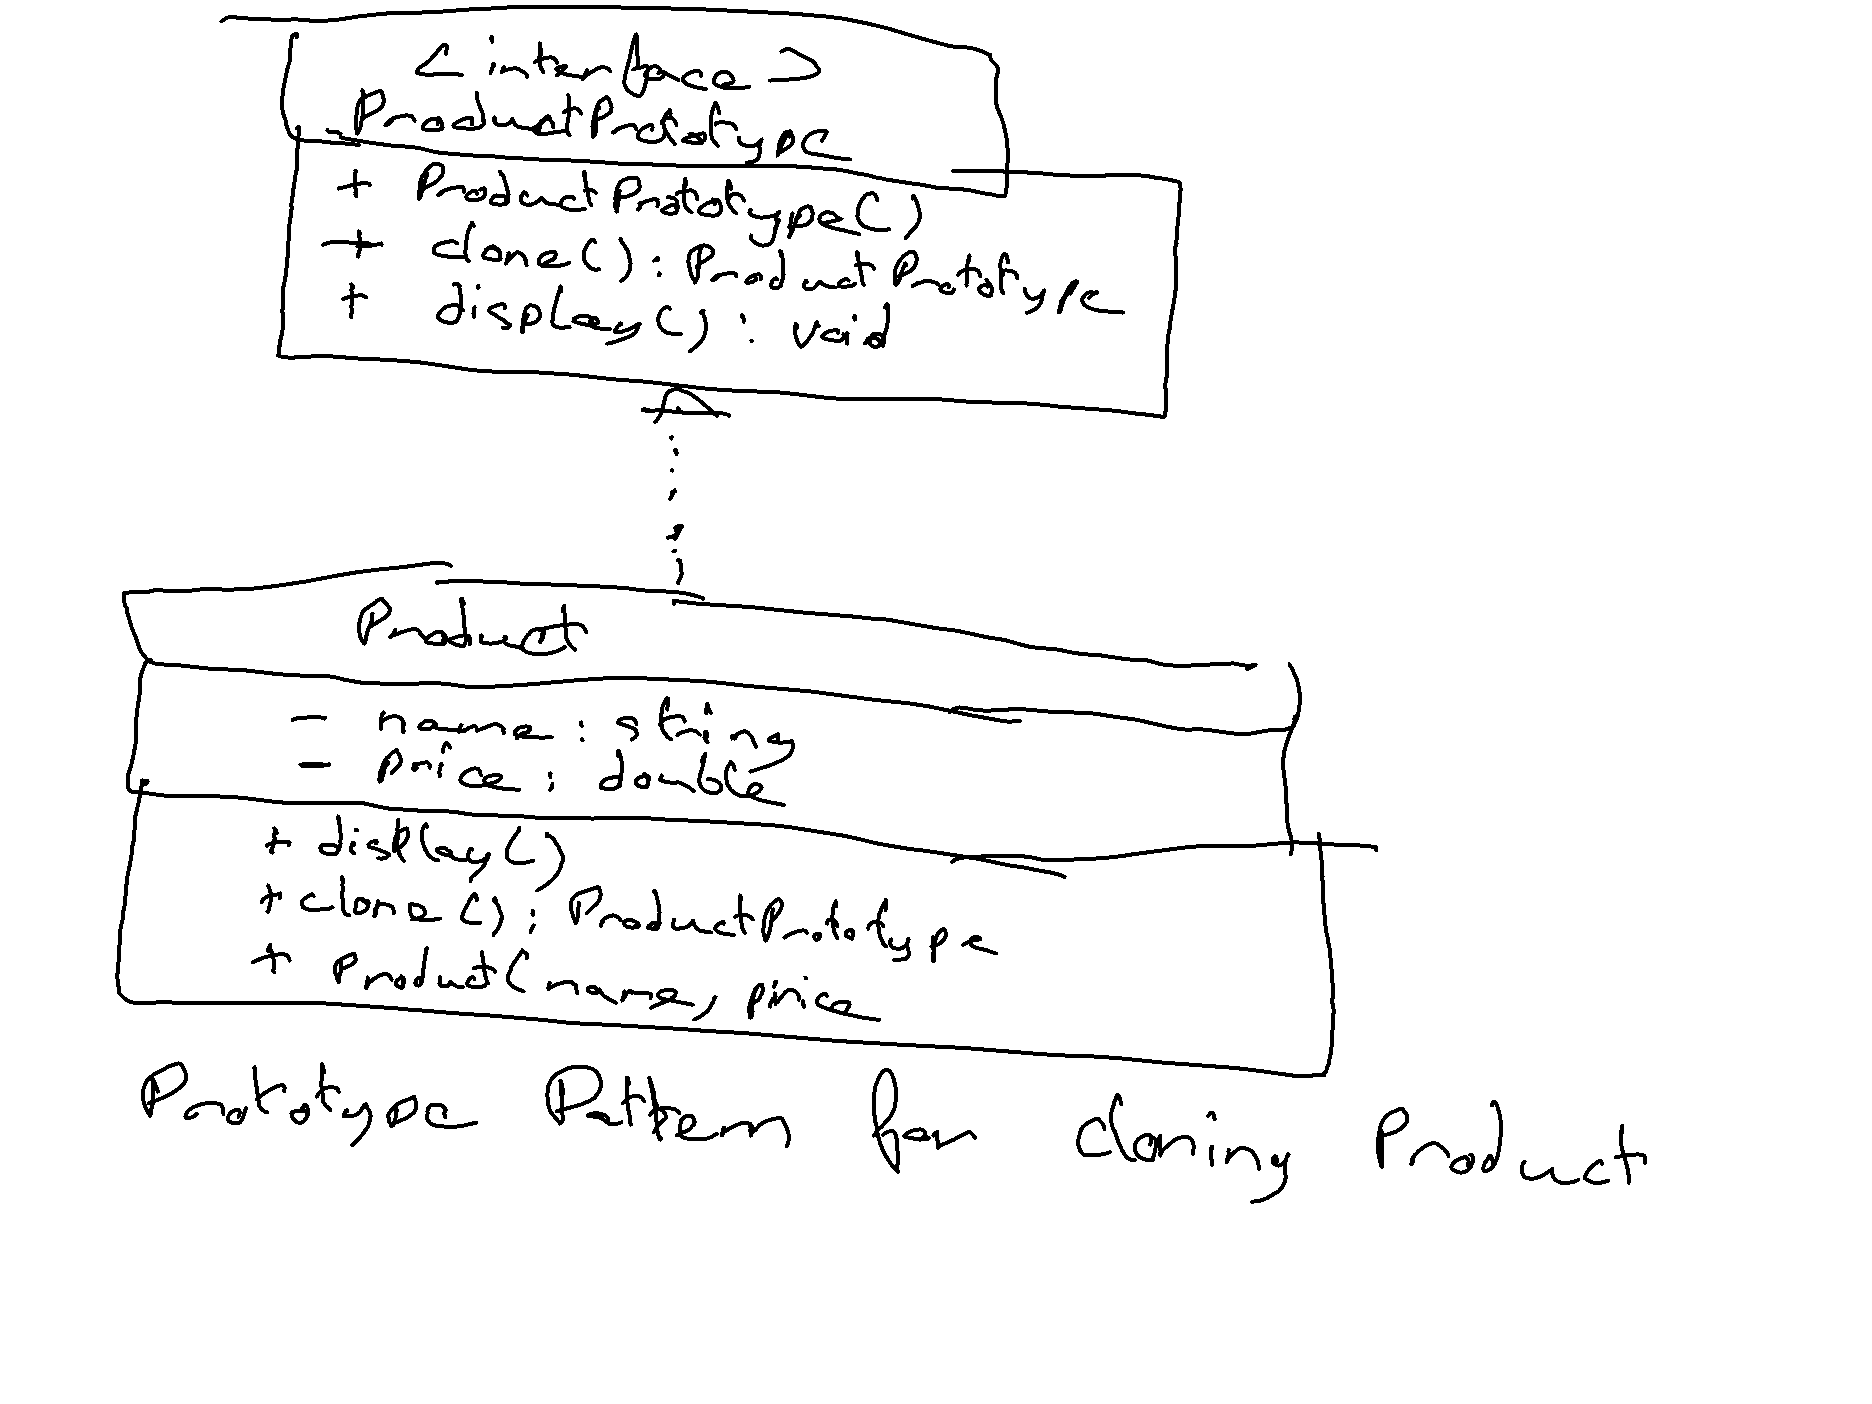 <interface>
ProductPrototype
+ ProductPrototype()
+ clone() : ProductPrototype
+ display() : void
Product
- name : string
- price : double
+ display()
+ clone() : ProductPrototype
+ Product(name, price
Prototype Pattern for cloning Product